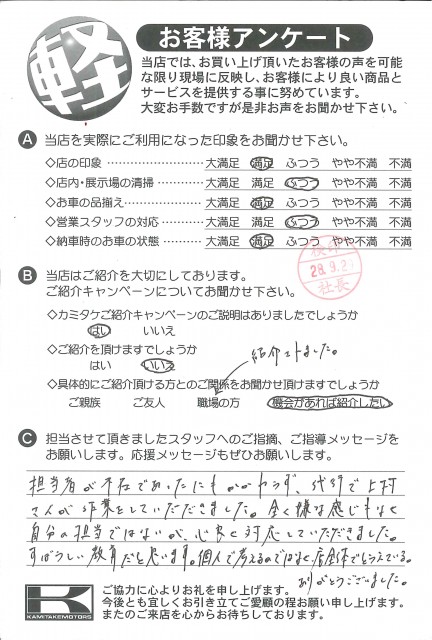 軽
お客様アンケート
当店では、お買い上げ頂いたお客様の声を可能
な限り現場に反映し、お客様により良い商品と
サービスを提供する事に努めています。
大変お手数ですが是非お声をお聞かせ下さい。
A 当店を実際にご利用になった印象をお聞かせ下さい。
◇店の印象 …………………… 大満足 満足 ふつう やや不満 不満
◇店内・展示場の清掃 ………… 大満足 満足 ふつう やや不満 不満
◇お車の品揃え ……………… 大満足 満足 ふつう やや不満 不満
◇営業スタッフの対応 ………… 大満足 満足 ふつう やや不満 不満
◇納車時のお車の状態 ………… 大満足 満足 ふつう やや不満 不満
28.9.2
社長
B 当店はご紹介を大切にしてあります。
ご紹介キャンペーンについてお聞かせ下さい。
◇カミタケご紹介キャンペーンのご説明はありましたでしょうか
はい いいえ
◇ご紹介を頂けますでしょうか
はい いいえ
紹介されました。
◇具体的にご紹介頂ける方とのご関係をお聞かせ頂けますでしょうか
ご親族 ご友人 職場の方 機会があれば紹介したい
C 担当させて頂きましたスタッフへのご指摘、ご指導メッセージを
お願いします。応援メッセージもぜひお願いします。
担当者が不在であったにもかかわらず、代弁で上村
さんが作業をしていただきました。全く嫌な感じもなく
自分の担当ではないが、心良く対応していただきました。
すばらしい教育だと思います。個人で考えるのではなく店全体でとらえている。
ありがとうございました。
K
KAMITAKEMOTORS
ご協力に心よりお礼を申し上げます。
今後とも宜しくお引き立てご愛顧の程お願い申し上げます。
またのご来店を心からお待ちしております。